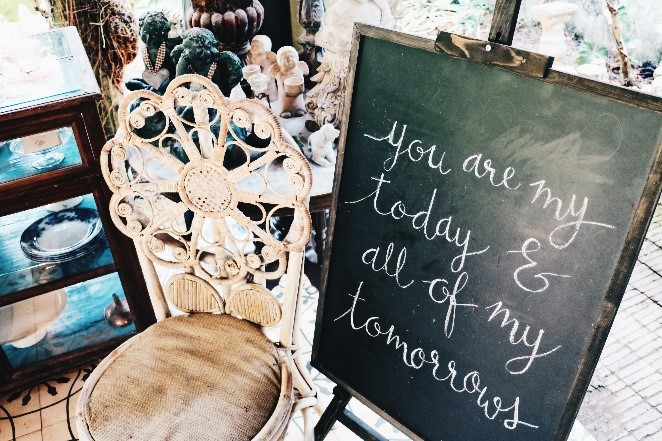 you are my
today &
all of my
tomorrows